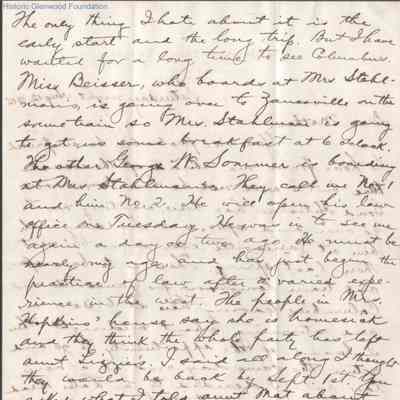 Historic Glenwood Foundation
The only thing I hate about it is the
early start and the long trip. But I have
wanted for a long time to see Columbus.
Miss Beisser, who boards at Mrs Stahl-
man's, is going over to Zanesville on the
same train so Mrs. Stahlman is going
to get us some breakfast at 6 o'clock.
The other George W. Sommer is boarding
at Mrs Stahlman's. They call me No. 1
and him No. 2. He will open his law
office on Tuesday. He was in to see me
again a day or two ago. He must be
nearly my age and has just begun the
practice of law after a varied expe-
rience in the west. The people in Mrs.
Hopkins' house say she is homesick
and they think the whole party has left
aunt Lizzie's. I said all along I thought
they would be back by Sept 1st. You
ask what I told aunt Mat about